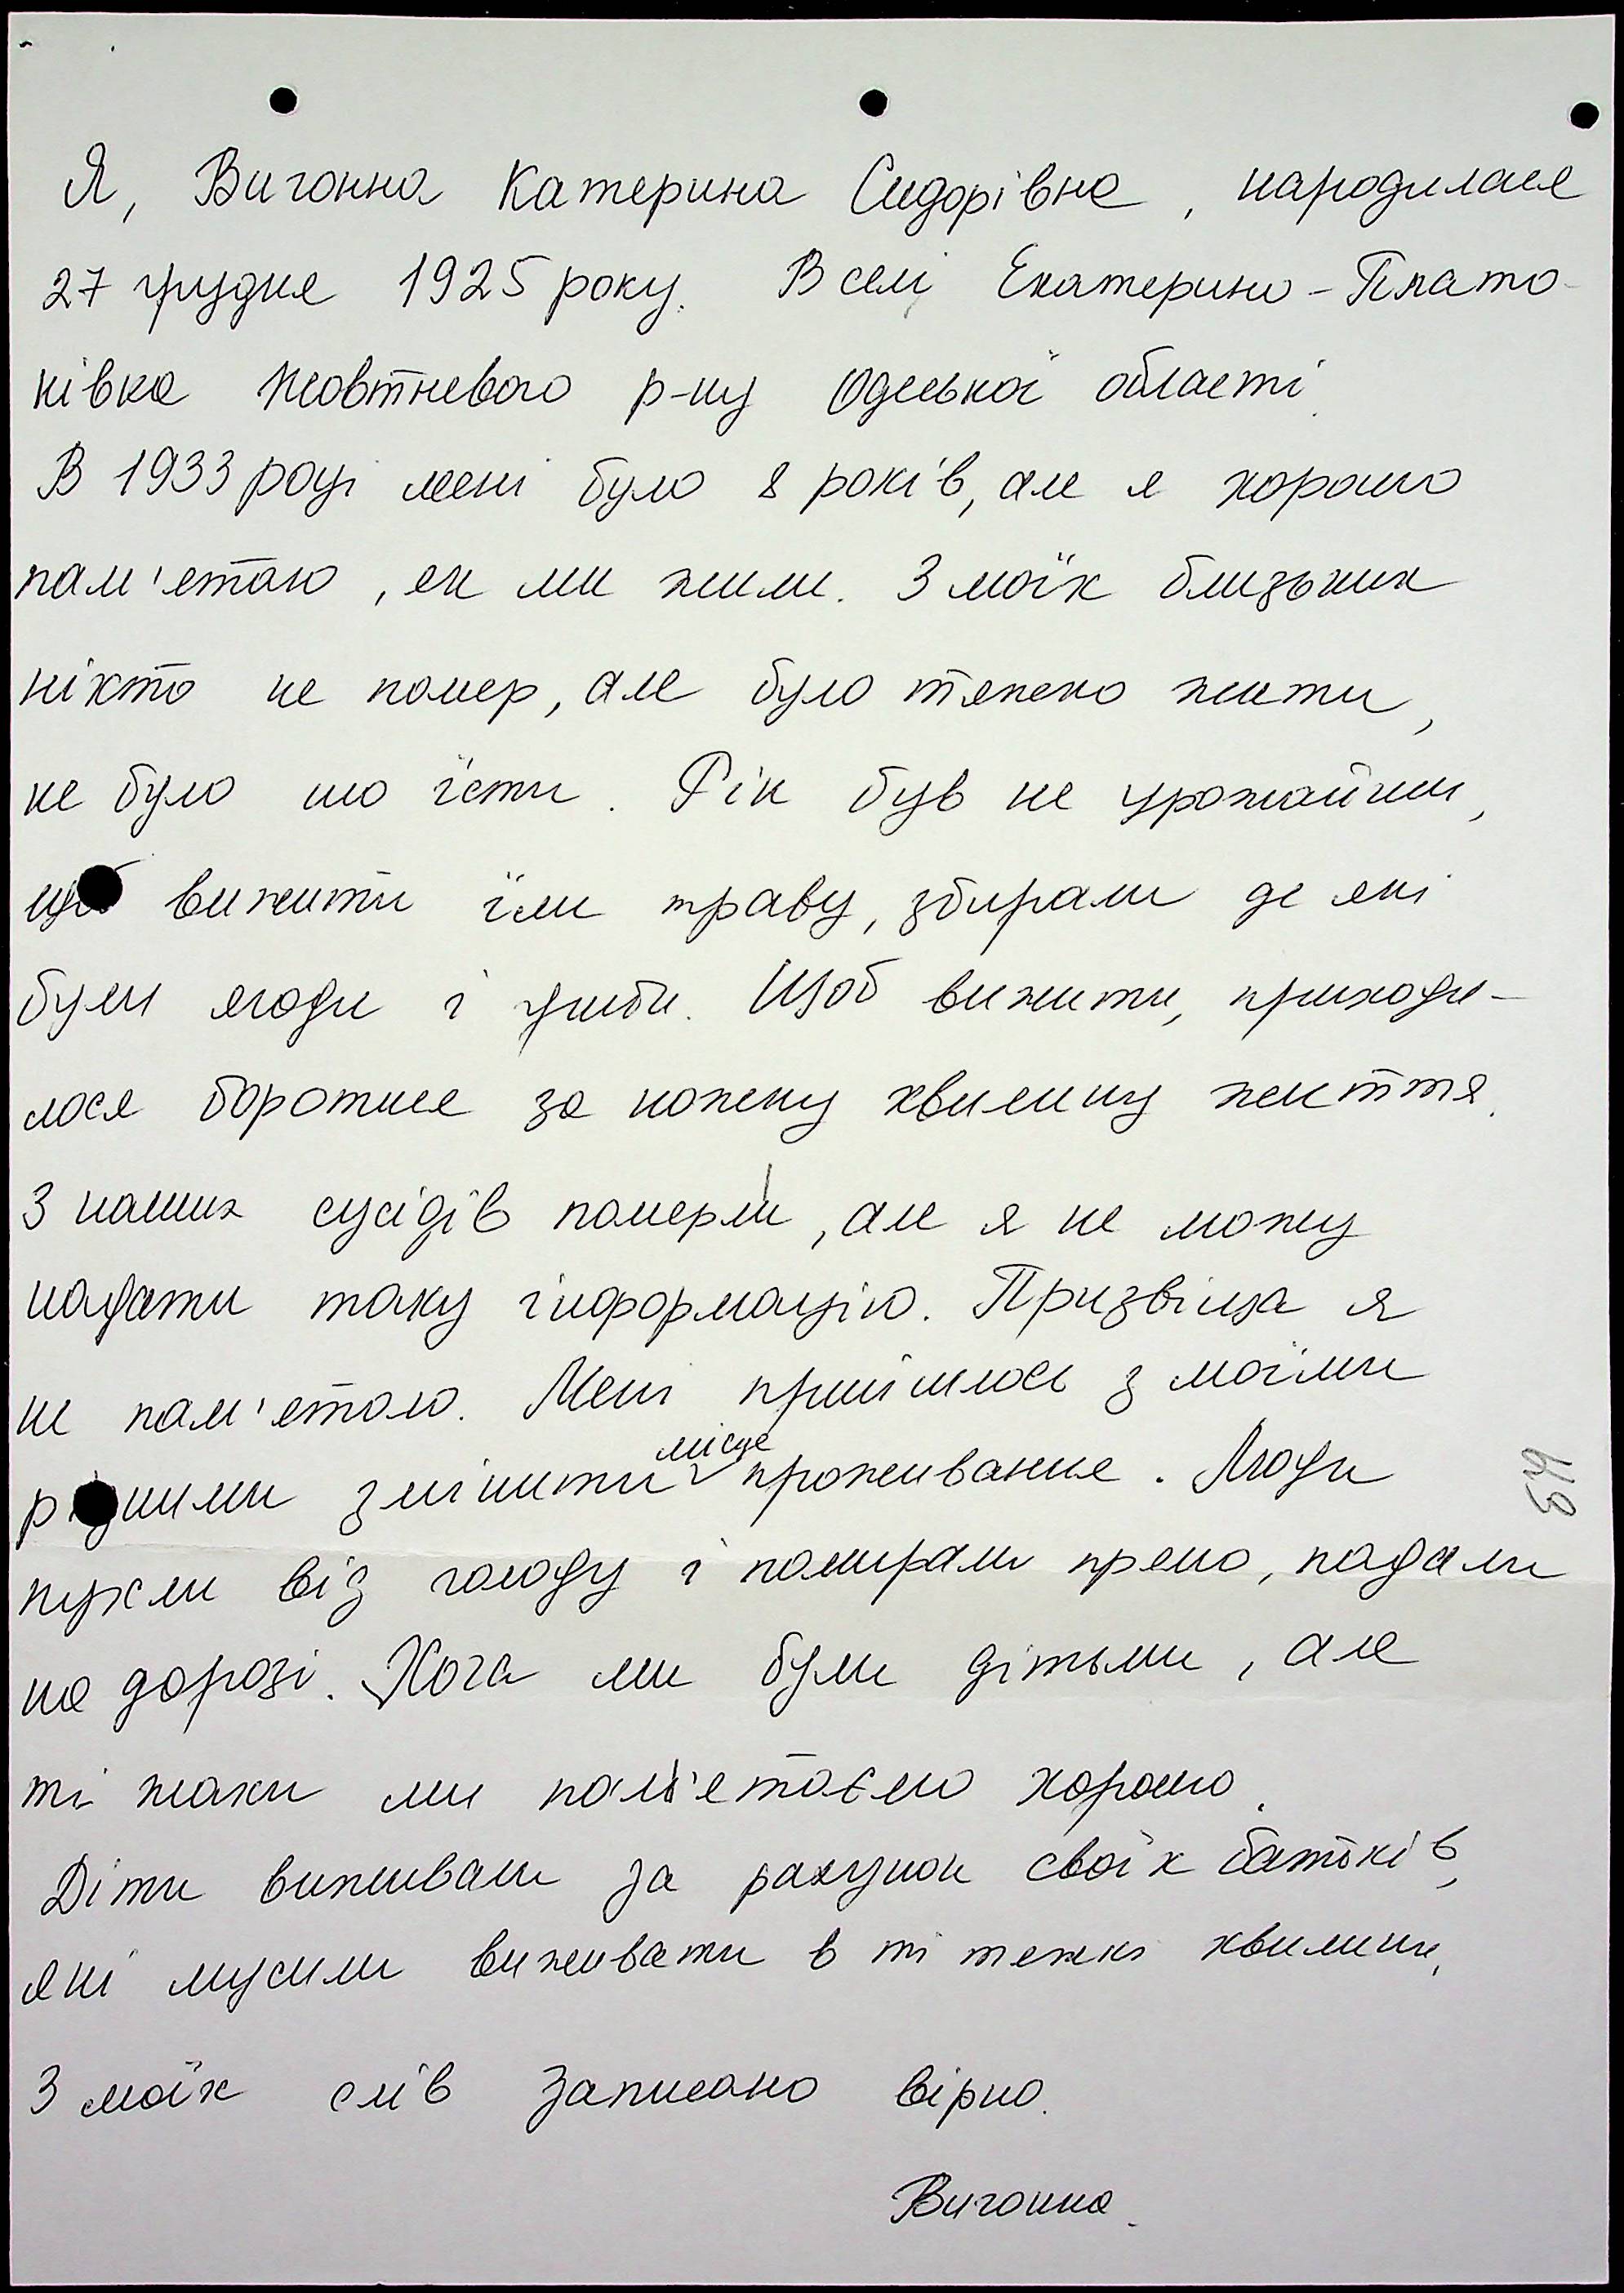 Я, Вигонна Катерина Сидорівна, народилася
27 грудня 1925 року. В селі Екатерино-Плато-
нівка Жовтневого р-ну Одеської області.
В 1933 році мені було 8 років, але я хорошо
пам'ятаю, як ми жили. З моїх близьких
ніхто не помер, але було тяжело жити,
не було шо їсти. Рік був не урожайним,
щоб вижити їли траву, збирали де які
були ягоди і гриби. Щоб вижити, приходи-
лося боротися за кожену хвилину життя.
З наших сусідів померли, але я не можу
надати таку інформацію. Призвіща я
не пам'ятаю. Мені прийшлось з моїми
рідними змінити місце проживання. Люди
пухли від голоду і помирали прямо, падали
на дорозі. Хоча ми були дітьми, але
ті жахи ми пам'ятаємо хорошо.
Діти виживали за рахунок своїх батьків,
які мусили виживати в ті тяжкі хвилини.
З моїх слів записано вірно.
Вигонна.
649